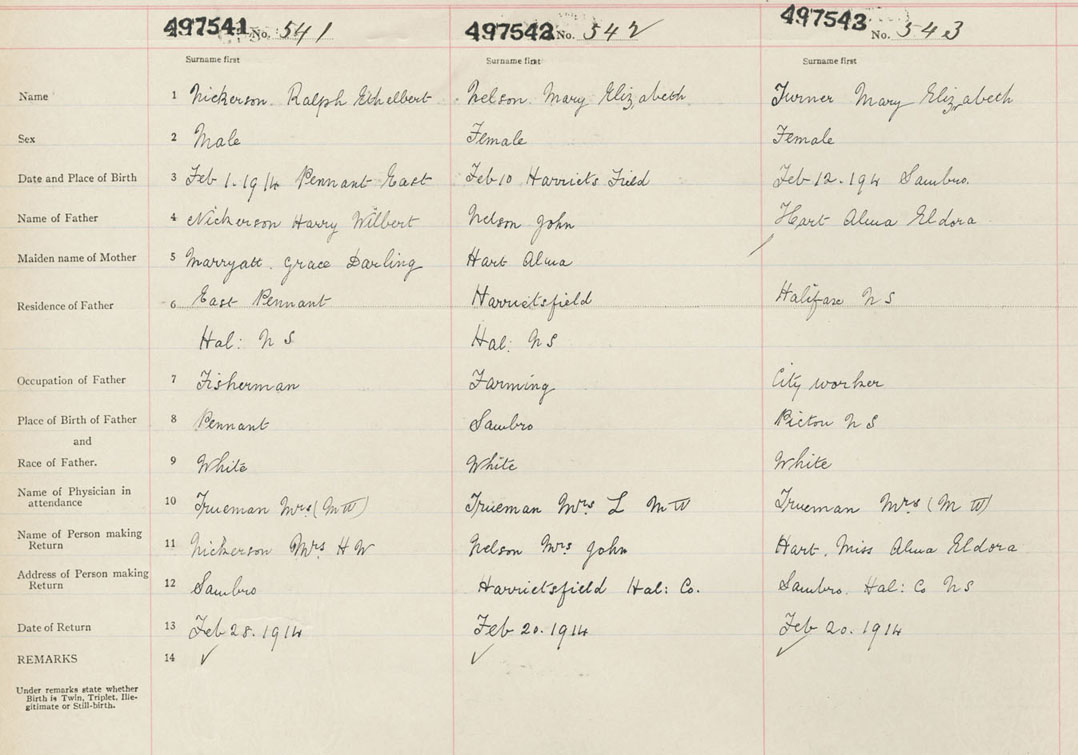 497541 No. 541 497542 No. 542 497543 No. 543
Surname first Surname first Surname first
Name 1 Nickerson. Ralph Ethelbert Nelson. Mary Elizabeth Turner Mary Elizabeth
Sex 2 Male Female Female
Date and Place of Birth 3 Feb 1. 1914 Pennant East Feb 10 Harriets Field Feb 12. 191 Sambro.
Name of Father 4 Nickerson Harry Wilbert Nelson John Hart Alma Eldora
Maiden name of Mother 5 Marryatt. Grace Darling Hart Alma
Residence of Father 6 East Pennant Harrietsfield Halifax N S
Hal: N S Hal: N S
Occupation of Father 7 Fisherman Farming City worker
Place of Birth of Father 8 Pennant Sambro Picton N S
and
Race of Father. 9 White White White
Name of Physician in
attendance 10 Trueman Mrs (M W) Trueman Mrs L M W Trueman Mrs (M W)
Name of Person making
Return 11 Nickerson Mrs H W Nelson Mrs John Hart. Miss Alma Eldora
Address of Person making
Return 12 Sambro Harrietsfield Hal: Co. Sambro. Hal: Co N S
Date of Return 13 Feb 28. 1914 Feb 20. 1914 Feb 20. 1914
REMARKS 14 ✓ ✓ ✓
Under remarks state whether
Birth is Twin, Triplet, Ille-
gitimate or Still-birth.